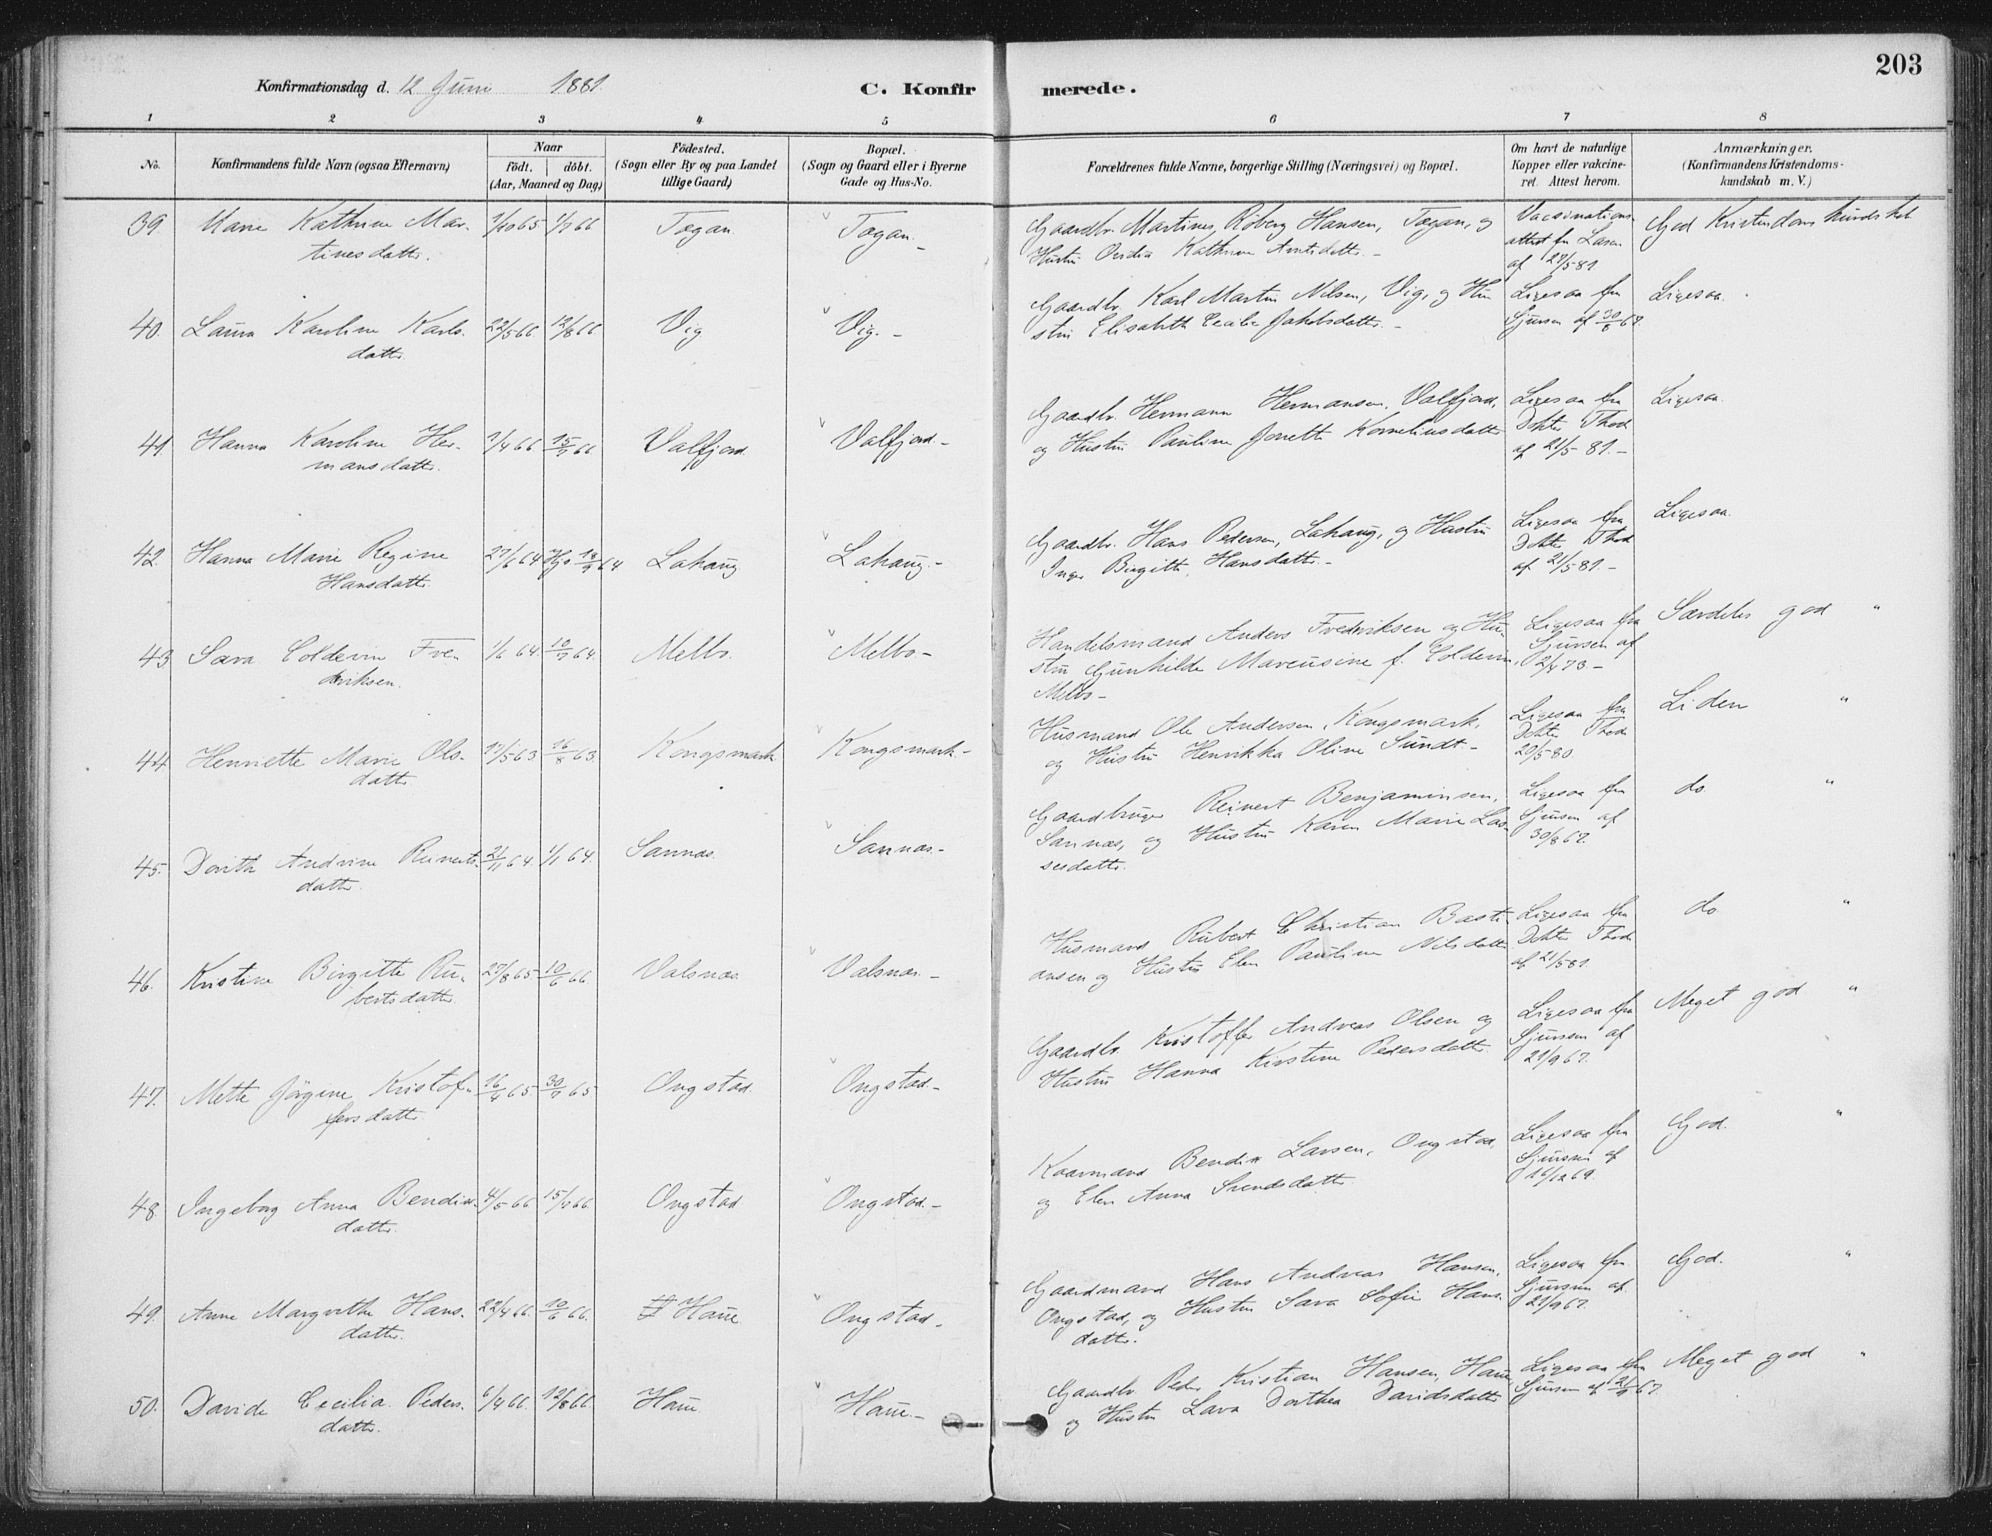 203
Konfirmationsdag d. 12 Juni 1881. C. Konfirmerede.
1 2 3 4 5 6 7 8
No. Konfirmandens fulde Navn (ogsaa Efternavn) Naar födt. döbt. (Aar, Maaned og Dag) Födested. (Sogn eller By og paa Landet tillige Gaard) Bopæl. (Sogn og Gaard eller i Byerne Gade og Hus-No. Forældrenes fulde Navne, borgerlige Stilling (Næringsvei) og Bopæl. Om havt de naturlige Kopper eller vakcineret. Attest herom. Anmærkninger. (Konfirmandens Kristendomskundskab m. V.)
39. Marie Kathrine Mar- 1/10 65 1/7 66 Togan Togan. Gaardbr. Martines Röberg Hansen, Togan, og Vaccinations- God Kristendomskundskab
tinesdatter. Hustru Kathrine attest fra
af 27/5 81
40. Laura Karoline Karls- 22/5 66 12/8 66 Vig Vig. Gaardbr. Karl Martin Nilsen, Vig, og Hu- Ligesaa fra Ligesaa.
datter. stru Elisabeth Cecilie Jakobsdatter. Sjursen af
41. Hanna Karoline Her- 1/4 66 15/7 66 Valfjord Valfjord. Gaardbr. Hermann Hermansen, Valfjord, Ligesaa fra Ligesaa.
mansdatter. og Hustru Pauline Kornelinsdatter Dokter Thode
af 21/5 81.
42. Hanna Marie Regine 27/6 64 Hjd 18/9 64 Lahaug Lahaug. Gaardbr. Hans Pedersen, Lahaug, og Hustru Ligesaa fra Ligesaa.
Hansdatter. Inger Birgitte Hansdatter. Dokter Thode
af 21/5 81.
43. Sara Coldevin Fre- 1/6 64. 10/7 64. Melbo. Melbo Handelsmand Anders Fredriksen og Hu- Ligesaa fra Særdeles god "
driksen. stru Gunhilde Marcusine f. Coldevin, Sjursen af
Melbo 2/4 73
44. Henriette Marie Ols- 17/5 63 16/8 63. Kongsmark Kongsmark. Husmand Ole Andersen, Kongsmark, Ligesaa fra Liden "
datter. og Hustru Henrikka Oline Sundt. Dokter Thode
20/5 80.
45. Dorith Andrine Reinerts- 64. 1/1 64. Sannas. Sannas. Gaardbruger Reinert Benjaminsen, Ligesaa fra do "
datter. Sannas, og Hustru Karen Marie Las- Sjursen af
sesdatter. 30/8 67.
46. Kristine Birgitte Ru- 27/8 65 10/6 66. Valsnas Valsnas. Husmand Rubert Christian Basti- Ligesaa fra do "
bertsdatter. ansen og Hustru Elen Pauline Nilsdatter Dokter Thode
af 21/5 81.
47. Mette Jörgine Kristof- 16/4 65 30/7 65 Ongstad. Ongstad. Gaardbr. Kristoffer Andreas Olsen og Ligesaa fra Meget god "
fersdatter. Hustru Hanna Kirstine Pedersdatter. Sjursen af
21/9 67.
48. Ingeborg Anna Bendix- 4/5 66 15/7 66. Ongstad Ongstad. Kaarmand Bendix Larsen, Ongstad, Ligesaa fra God. "
datter. og Elen Anna Svendsdatter. Sjursen af
16/12 69.
49. Anne Margrethe Hans- 22/4 66. 10/6 66. Haue Ongstad. Gaardmand Hans Andreas Hansen, Ligesaa fra God. "
datter. Ongstad, og Hustru Sara Sofie Hans- Sjursen af
datter. 21/9 67.
50. Davide Cecilia Peders- 6/4 66. 12/8 66. Haue Haue. Gaardbr. Peder Kristian Hansen, Haue, Ligesaa fra Meget god "
datter. og Hustru Lava Dorthea Davidsdatter Sjursen af 21/9 67.